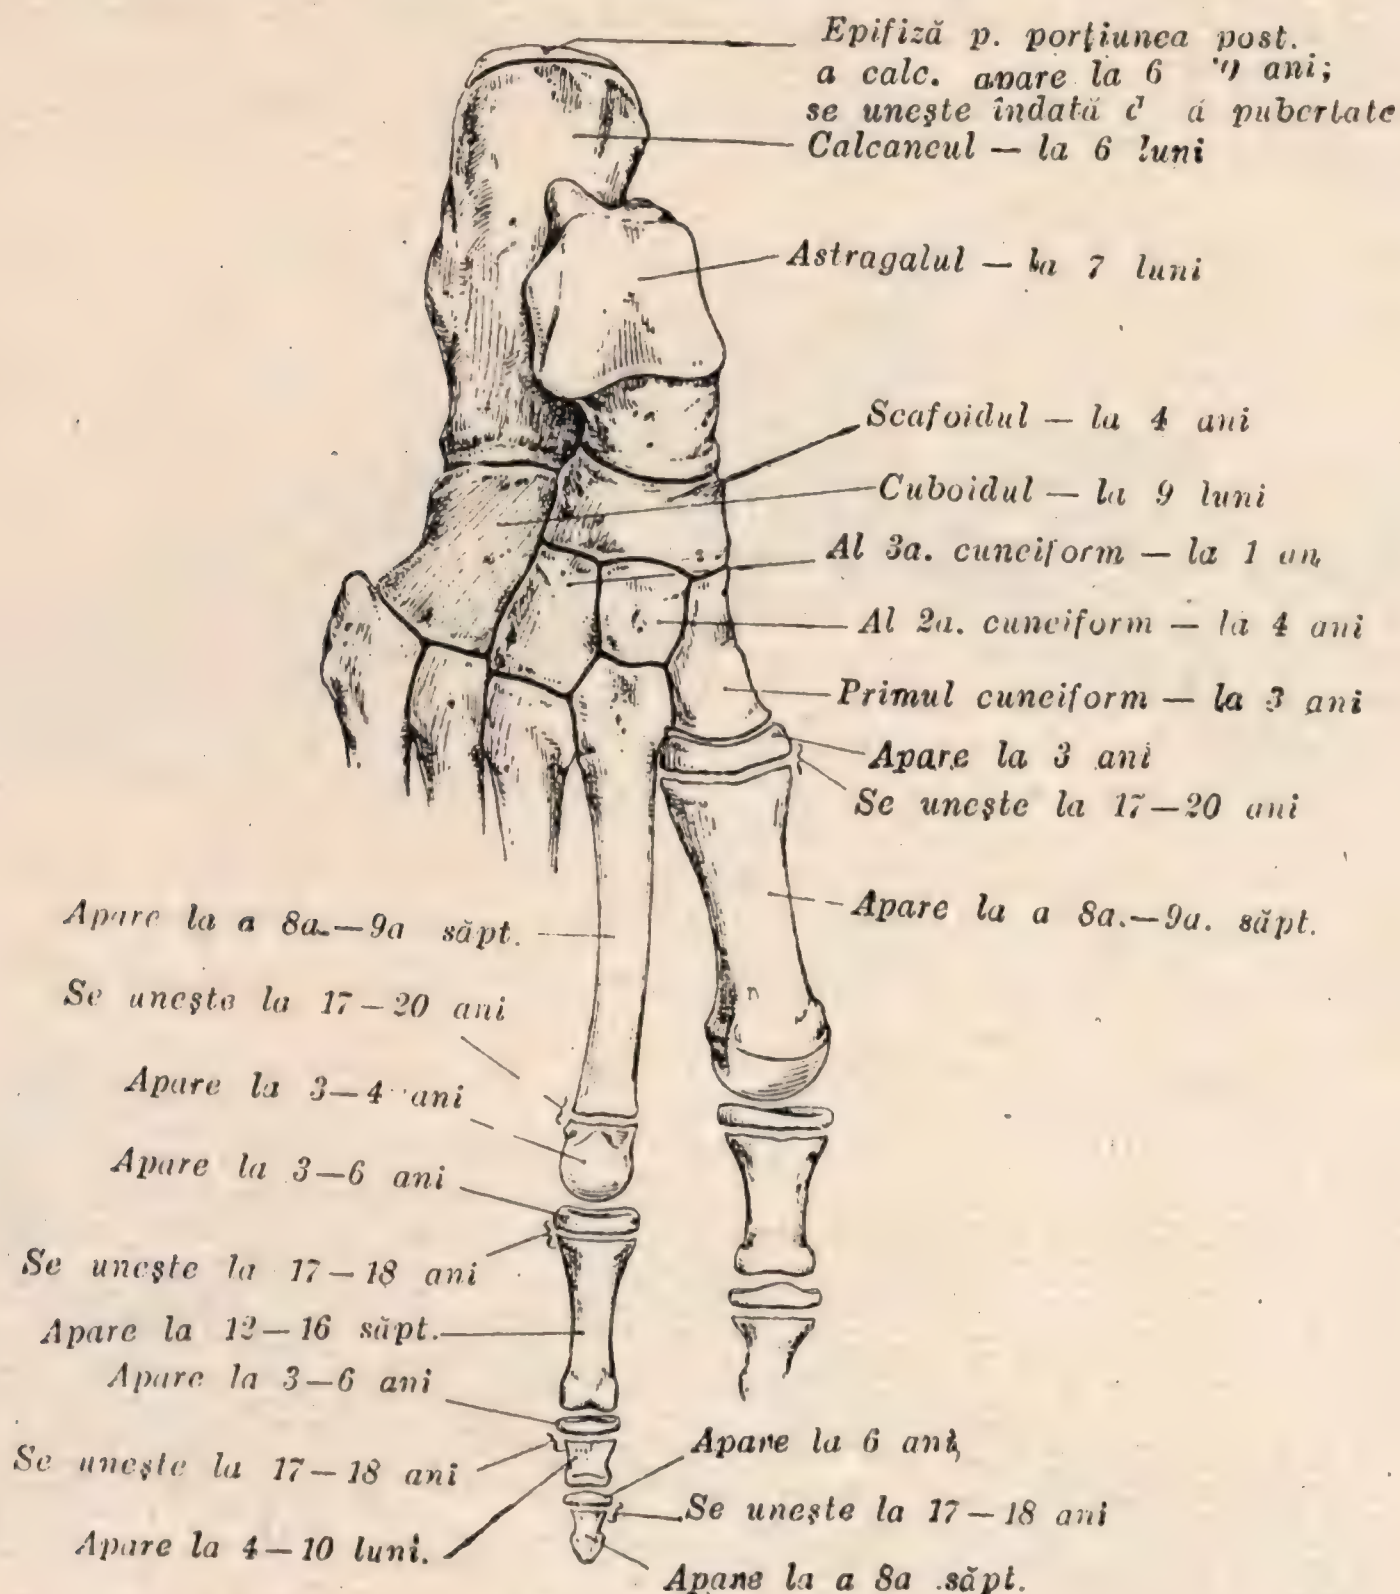 Epifiză p. porţiunea post.
a calc. apare la 6 ani;
se uneşte îndată pubertate
Calcaneul — la 6 luni
Astragalul — la 7 luni
Scafoidul — la 4 ani
Cuboidul — la 9 luni
Al 3a. cuneiform — la 1 an
Al 2a. cuneiform — la 4 ani
Primul cuneiform — la 3 ani
Apare la 3 ani
Se uneşte la 17—20 ani
Apare la a 8a.—9a săpt.
Apare la a 8a.—9a. săpt.
Se uneşte la 17—20 ani
Apare la 3—4 ani
Apare la 3—6 ani
Se uneşte la 17—18 ani
Apare la 12—16 săpt.
Apare la 3—6 ani
Apare la 6 ani
Se uneşte la 17—18 ani
Se uneşte la 17—18 ani
Apare la 4—10 luni.
Apare la a 8a săpt.